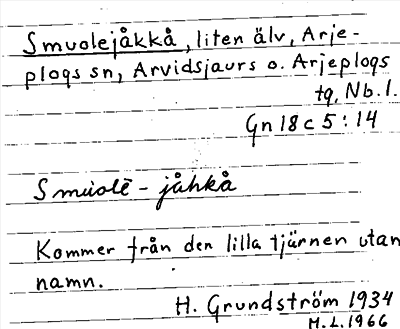 Smuolejåkkå, liten älv, Arje-
plogs sn, Arvidsjaurs o. Arjeplogs
tg, Nb. l.
Gn 18 c 5 : 14
Smúolē - jåhkå
Kommer från den lilla tjärnen utan
namn.
H. Grundström 1934
H. L. 1966